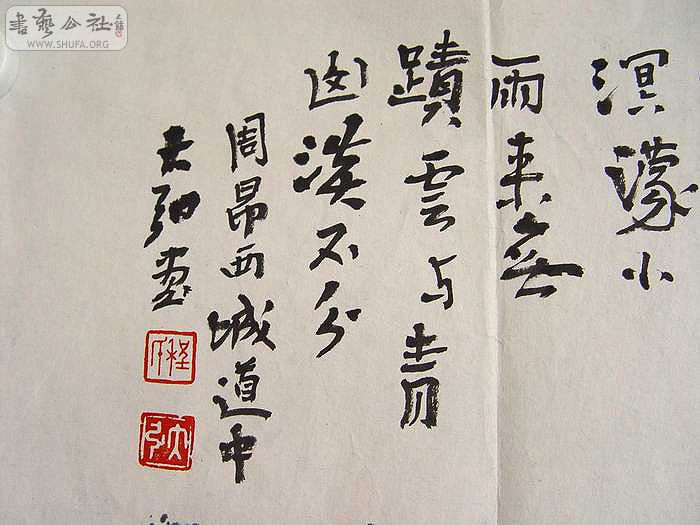 書藝公社
WWW.SHUFA.ORG
溟濛小
雨来無
蹟雲与青
山淡不分
周昂西城道中